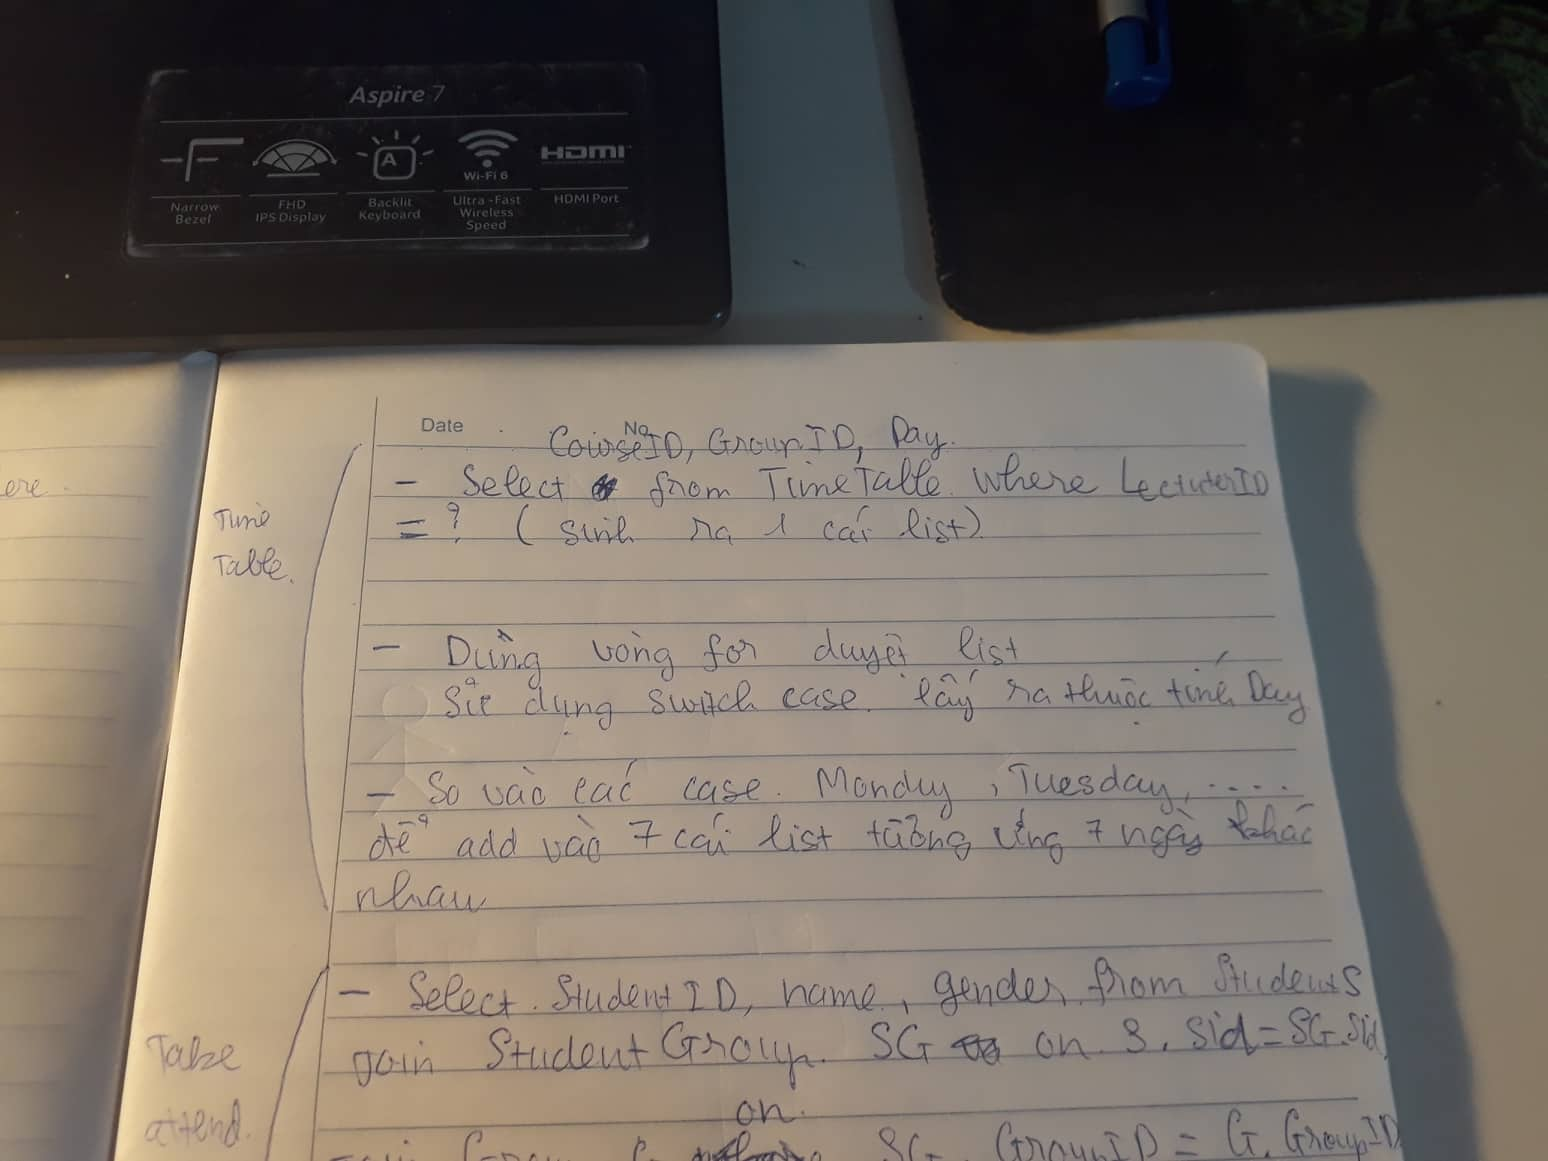 Aspire 7
Narrow Bezel
FHD IPS Display
A
Backlit Keyboard
Wi-Fi 6
Ultra-Fast Wireless Speed
HDMI
HDMI Port
ere.
Date
No
CourseID, GroupID, Day.
Time Table.
- Select from TimeTable where LecturerID
= ? ( sinh ra 1 cái list)
- Dùng vòng for duyệt list
Sử dụng switch case. lấy ra thuộc tính Day
- So vào các case. Monday, Tuesday, ....
để add vào 7 cái list tương ứng 7 ngày khác
nhau
Take attend.
- Select. StudentID, name, gender from Student S
join StudentGroup. SG on S. Sid = SG.Sid
on.
join Group G SG. GroupID = G. GroupID